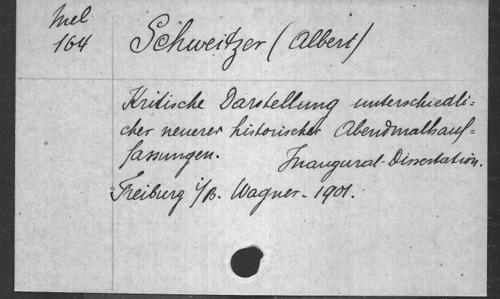 Mel
164
Schweitzer (Albert)
Kritische Darstellung unterschiedli=
cher neuerer historischer Abendmahlsauf=
fassungen. Inaugural-Dissertation.
Freiburg i/B. Wagner - 1901.